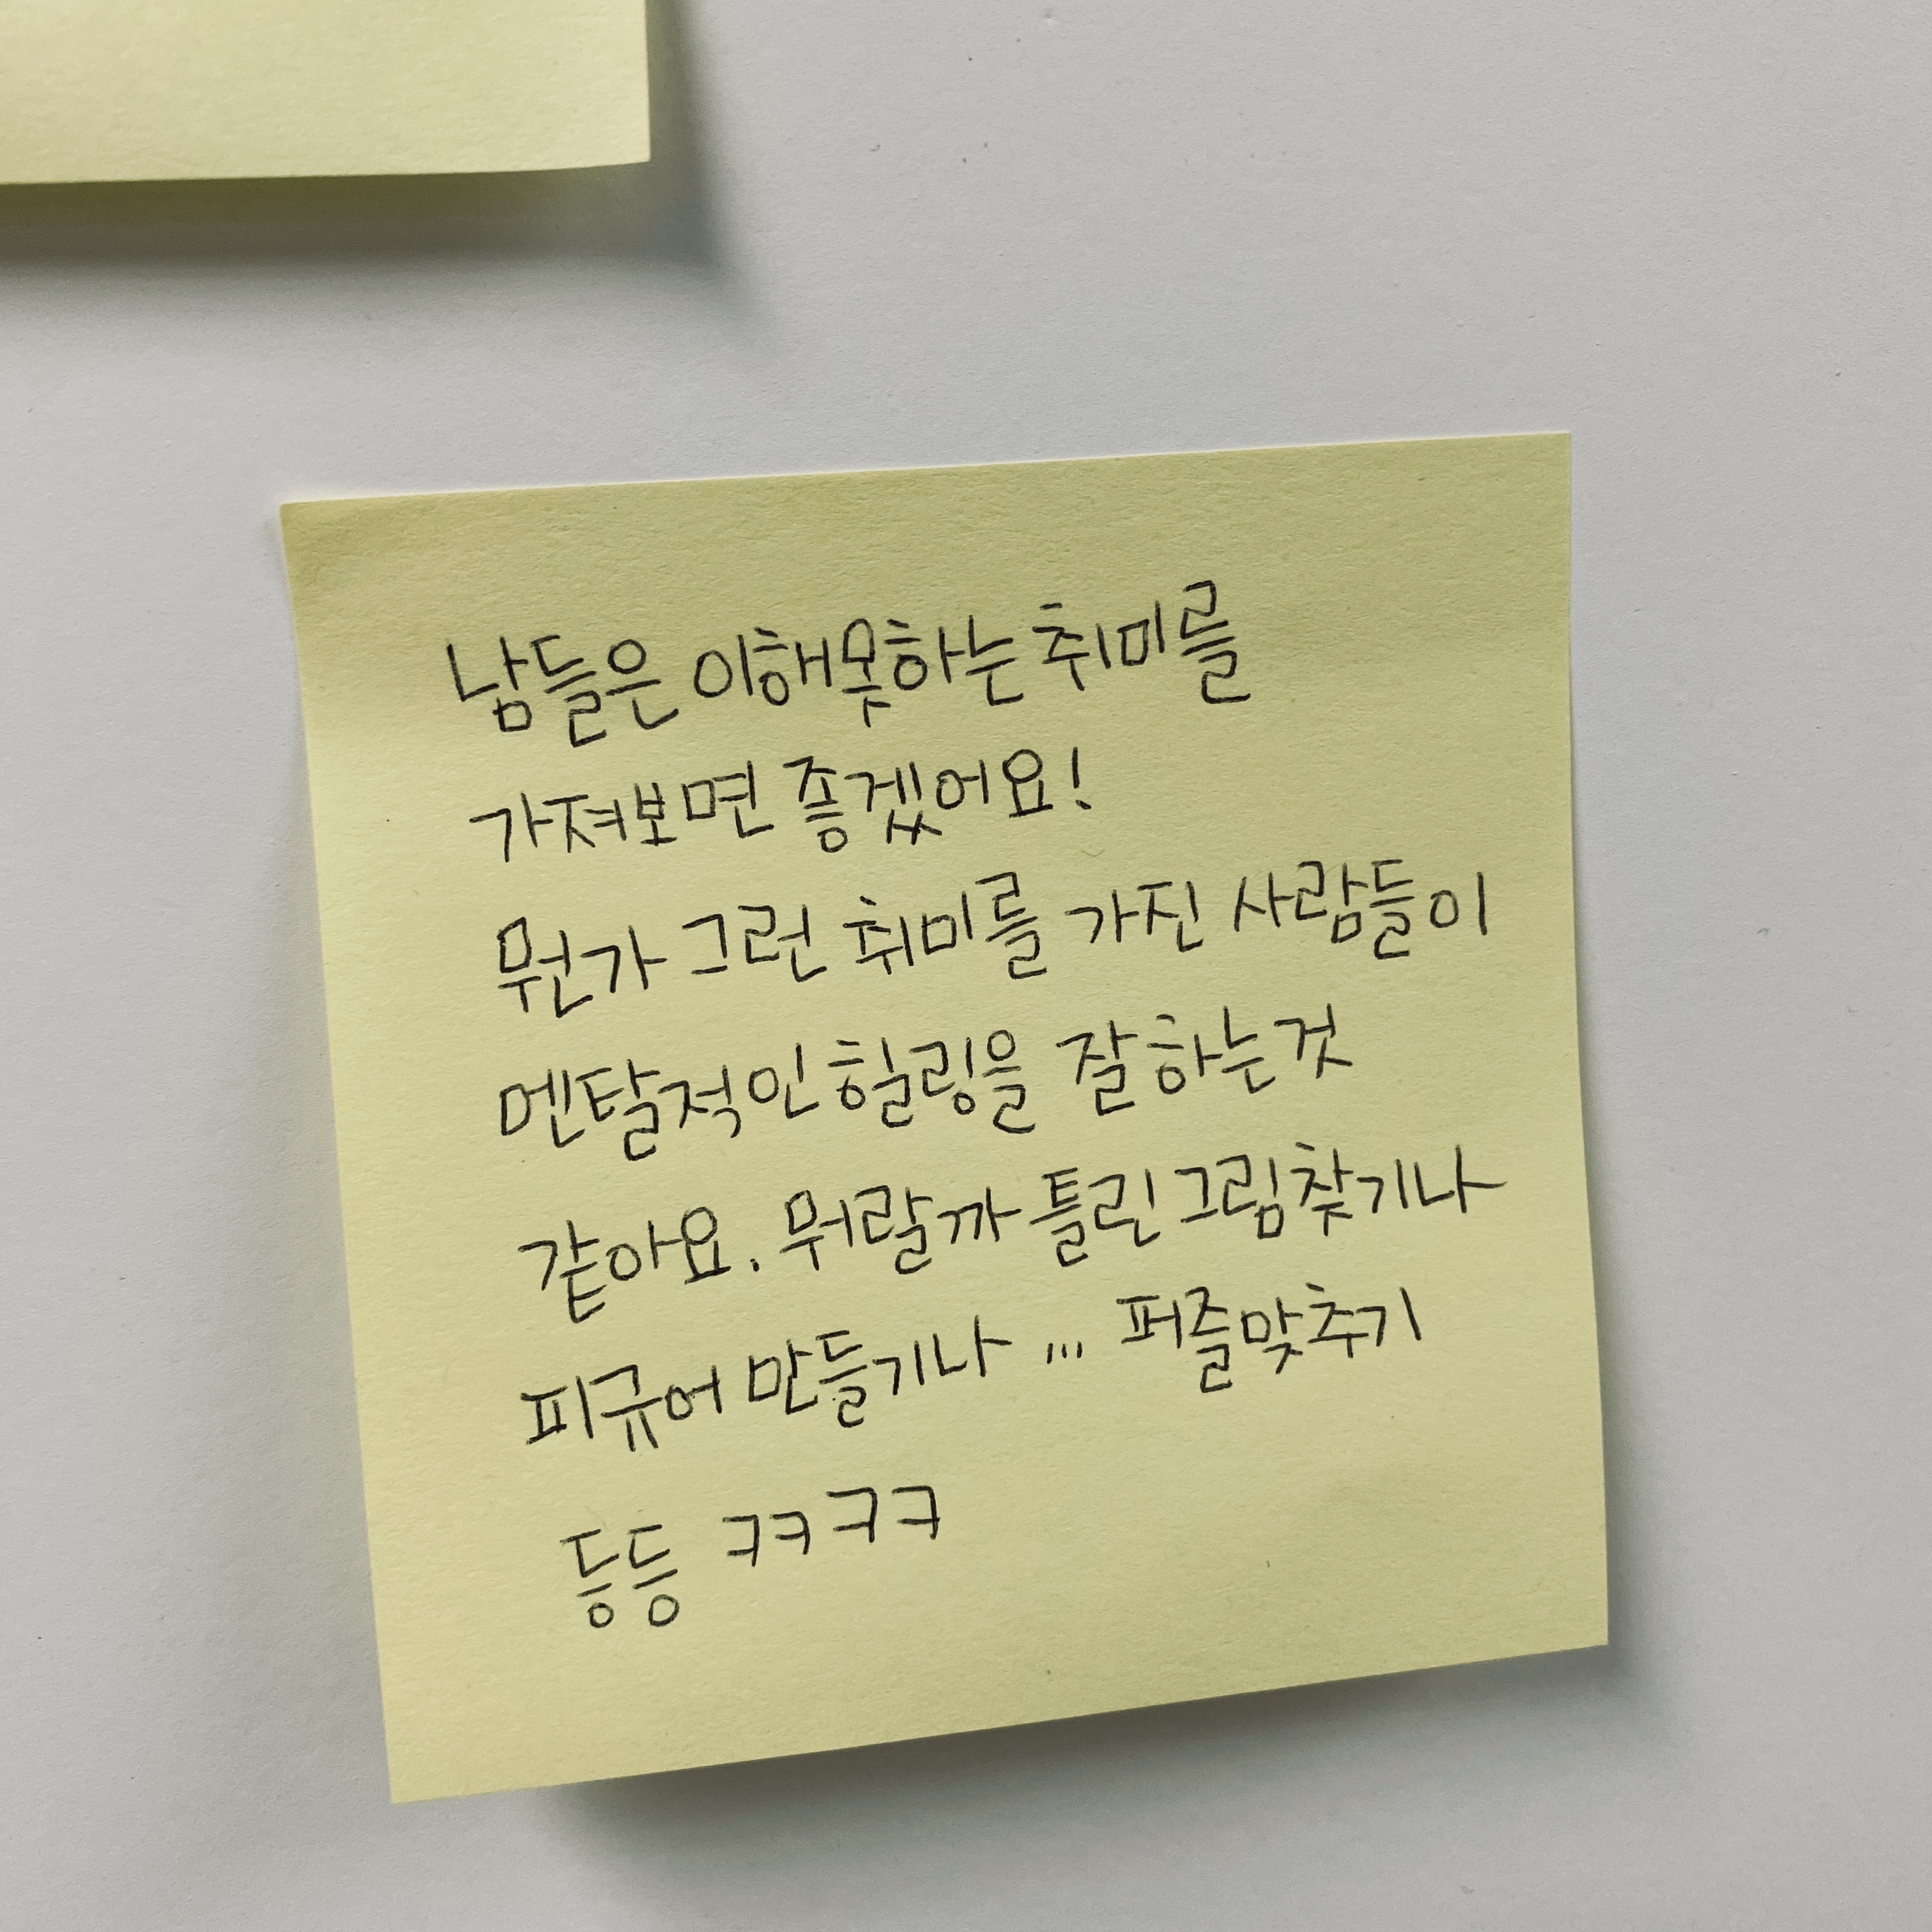 남들은 이해못하는 취미를
가져보면 좋겠어요!
뭔가 그런 취미를 가진 사람들이
멘탈적인 힐링을 잘하는것
같아요. 뭐랄까 틀린그림찾기나
피규어 만들기나 ... 퍼즐맞추기
등등 ㅋㅋㅋㅋ